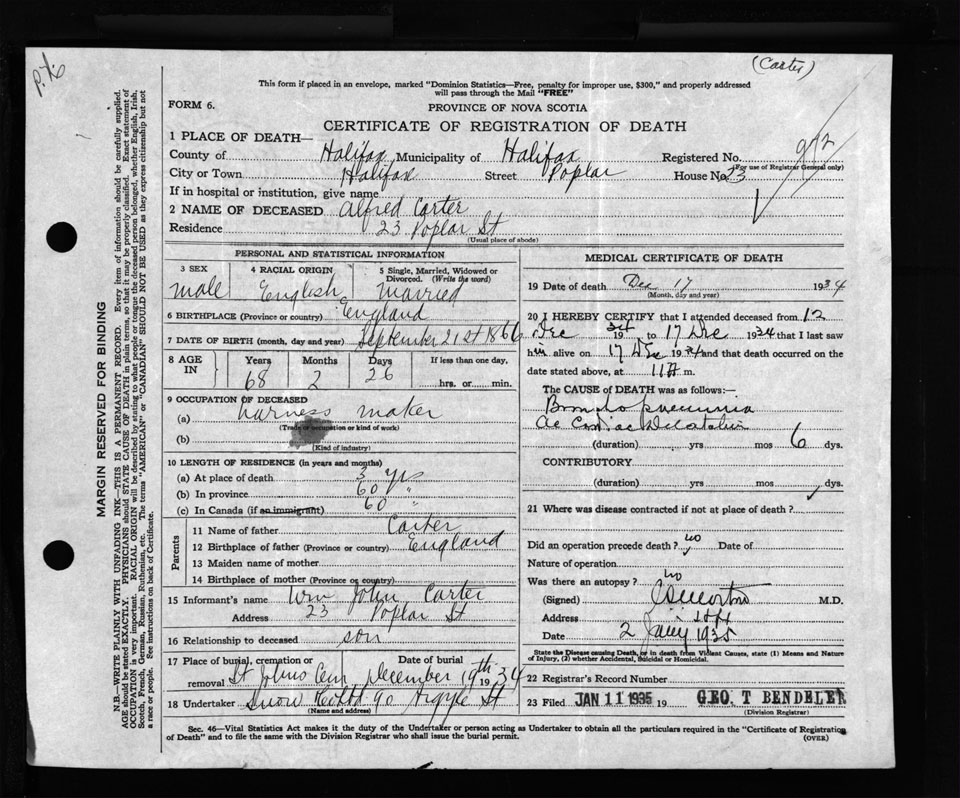 (Carter)
This form if placed in an envelope, marked "Dominion Statistics—Free, penalty for improper use, $300," and properly addressed
will pass through the Mail "FREE"
FORM 6.
PROVINCE OF NOVA SCOTIA
CERTIFICATE OF REGISTRATION OF DEATH
1 PLACE OF DEATH—
County of Halifax Municipality of Halifax Registered No. 912
(For use of Registrar General only)
City or Town Halifax Street Poplar House No. 23
If in hospital or institution, give name
2 NAME OF DECEASED Alfred Carter
Residence 23 Poplar St
(Usual place of abode)
PERSONAL AND STATISTICAL INFORMATION
3 SEX 4 RACIAL ORIGIN 5 Single, Married, Widowed or
Divorced. (Write the word)
male English married
6 BIRTHPLACE (Province or country) England
7 DATE OF BIRTH (month, day and year) September 21st 1866
8 AGE IN Years Months Days If less than one day,
68 2 26 hrs. or min.
9 OCCUPATION OF DECEASED
(a) harness maker
(Trade, occupation or kind of work)
(b)
(Kind of industry)
10 LENGTH OF RESIDENCE (in years and months)
(a) At place of death 3 yrs
(b) In province 60 "
(c) In Canada (if an immigrant) 60 "
Parents
11 Name of father Carter
12 Birthplace of father (Province or country) England
13 Maiden name of mother
14 Birthplace of mother (Province or country)
15 Informant's name Wm John Carter
Address 23 Poplar St
16 Relationship to deceased son
17 Place of burial, cremation or Date of burial
removal St Johns Cem December 19th 1934
18 Undertaker Snow & Co Ltd 90 Argyle St
(Name and address)
MEDICAL CERTIFICATE OF DEATH
19 Date of death Dec 17 1934
(Month, day and year)
20 I HEREBY CERTIFY that I attended deceased from 12
Dec 1934 to 17 Dec 1934 that I last saw
him alive on 17 Dec 1934 and that death occurred on the
date stated above, at 11 A m.
The CAUSE of DEATH was as follows:—
Broncho pneumonia
Ac Cardiac Dilatation
(duration) yrs mos 6 dys.
CONTRIBUTORY
(duration) yrs mos dys.
21 Where was disease contracted if not at place of death?
Did an operation precede death? no Date of
Nature of operation
Was there an autopsy? no
(Signed) M.D.
Address
Date 2 Jany 1935
State the Disease causing Death, or in death from Violent Causes, state (1) Means and Nature
of Injury, (2) whether Accidental, Suicidal or Homicidal.
22 Registrar's Record Number
23 Filed JAN 11 1935 19 GEO. T BENDELER
(Division Registrar)
Sec. 46—Vital Statistics Act makes it the duty of the Undertaker or person acting as Undertaker to obtain all the particulars required in the "Certificate of Registration
of Death" and to file the same with the Division Registrar who shall issue the burial permit.
(OVER)
MARGIN RESERVED FOR BINDING
N.B.—WRITE PLAINLY WITH UNFADING INK—THIS IS A PERMANENT RECORD. Every item of information should be carefully supplied.
AGE should be stated EXACTLY. PHYSICIANS should STATE CAUSE OF DEATH in plain terms, so that it may be properly classified. Exact statement of
OCCUPATION is very important. RACIAL ORIGIN will be described by stating to what people or tongue the deceased person belonged, whether English, Irish,
Scotch, French, German, Russian, Ruthenian, etc. The terms "AMERICAN" or "CANADIAN" SHOULD NOT BE USED as they express citizenship but not
a race or people. See instructions on back of Certificate.